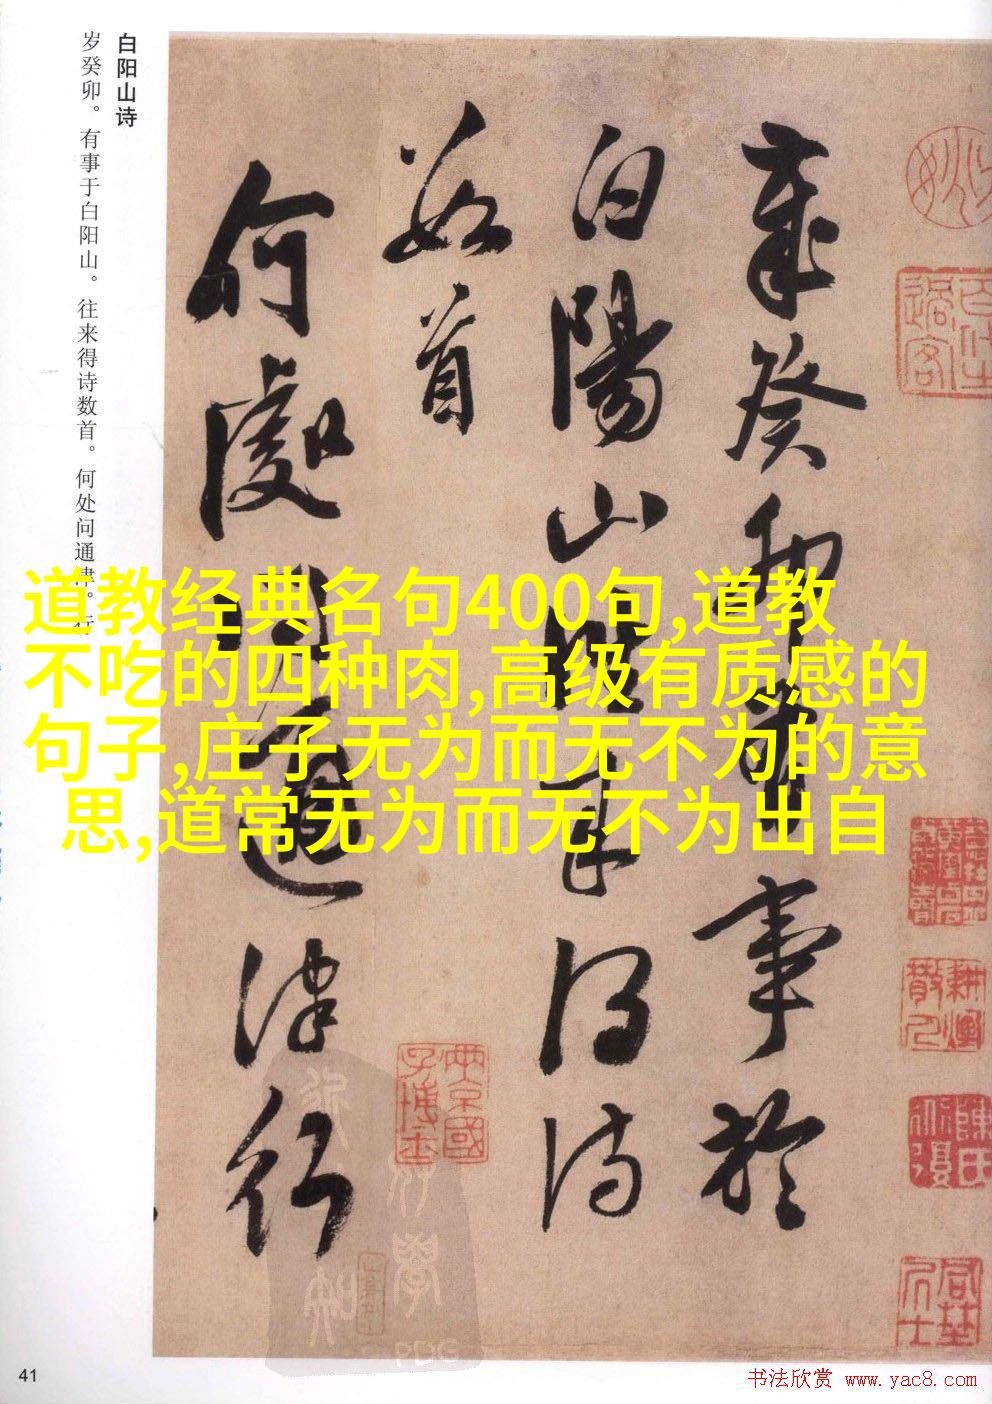 白阳山诗
岁癸卯。有事于白阳山。往来得诗数首。何处问通津。行
歲癸卯有事於
白陽山往來得诗
数首
何處问通津行
道教经典名句400句,道教
不吃的四种肉,高级有质感的
句子,庄子无为而无不为的意
思,道常无为而无不为出自
41
书法欣赏 www.yac8.com